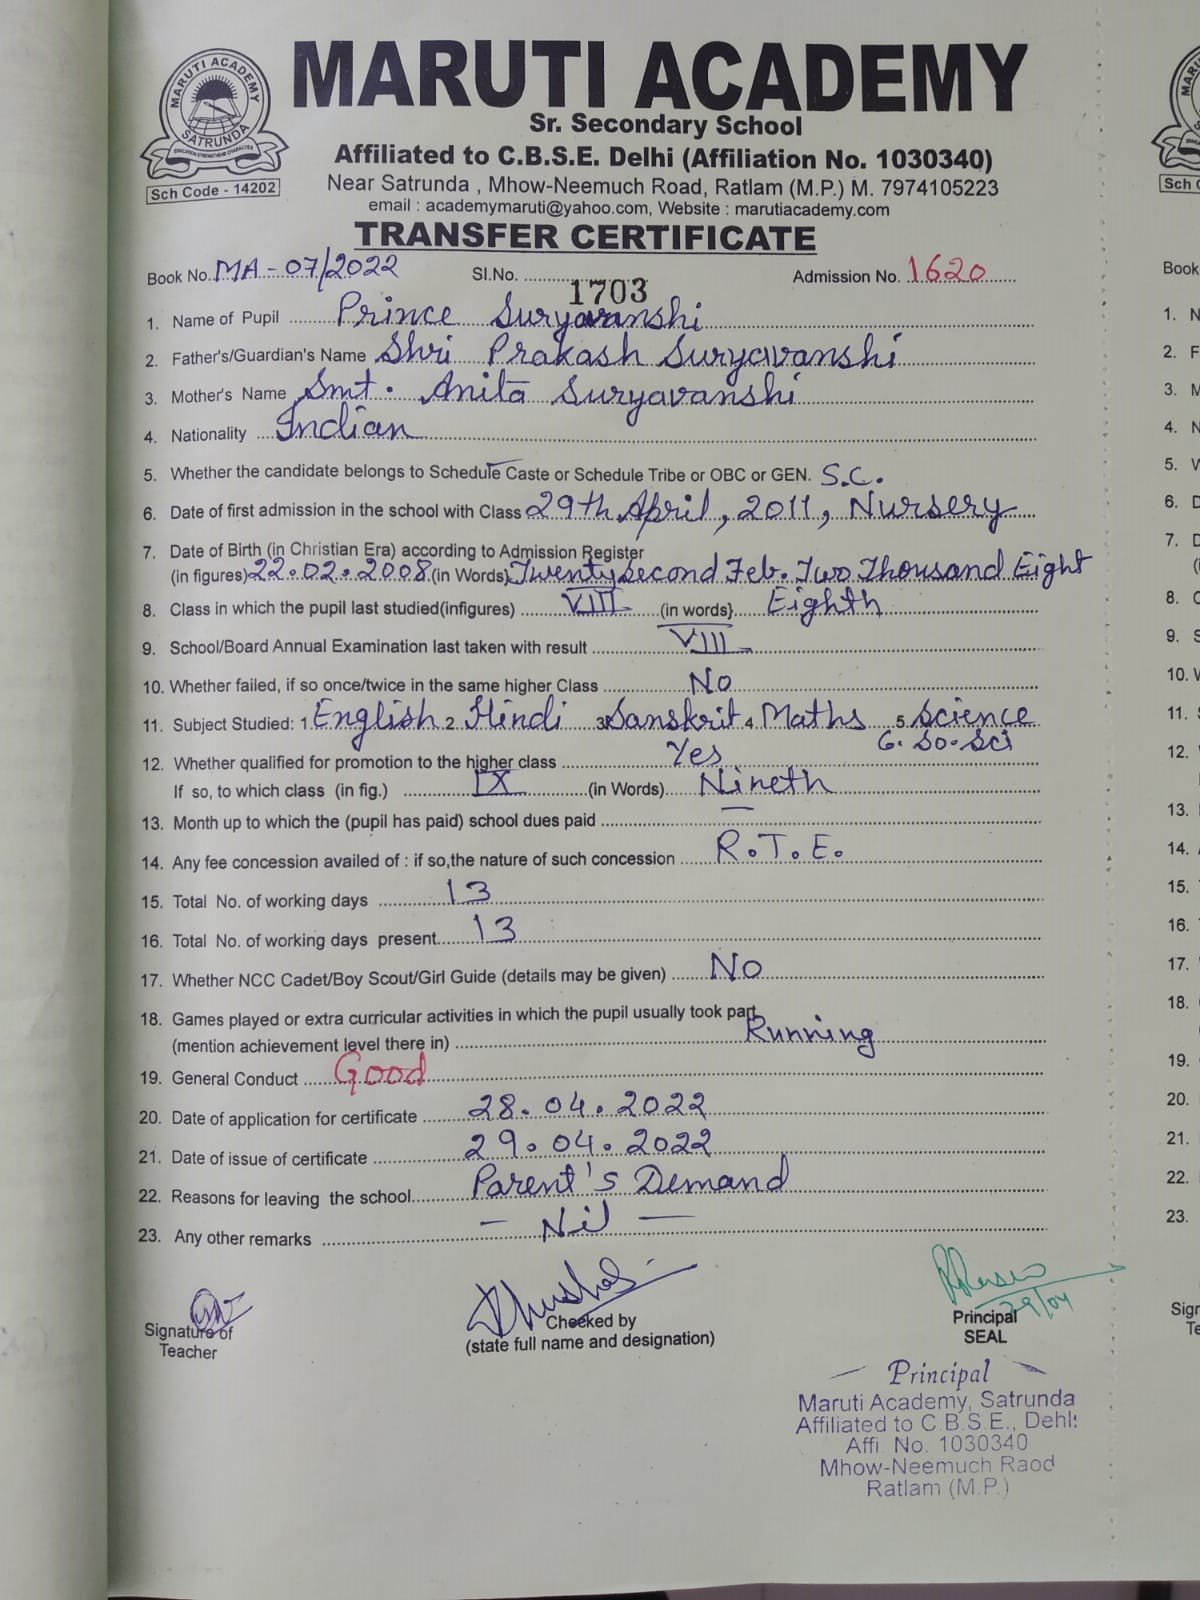 MARUTI ACADEMY
SATRUNDA
Sch Code - 14202
MARUTI ACADEMY
Sr. Secondary School
Affiliated to C.B.S.E. Delhi (Affiliation No. 1030340)
Near Satrunda , Mhow-Neemuch Road, Ratlam (M.P.) M. 7974105223
email : academymaruti@yahoo.com, Website : marutiacademy.com
TRANSFER CERTIFICATE
Book No. MA-07/2022 Sl.No. 1703 Admission No. 1620
1. Name of Pupil Prince Suryavanshi
2. Father's/Guardian's Name Shri Prakash Suryavanshi
3. Mother's Name Smt. Anita Suryavanshi
4. Nationality Indian
5. Whether the candidate belongs to Schedule Caste or Schedule Tribe or OBC or GEN. S.C.
6. Date of first admission in the school with Class 29th April, 2011, Nursery
7. Date of Birth (in Christian Era) according to Admission Register
(in figures) 22.02.2008 (in Words) Twenty second Feb. Two Thousand Eight
8. Class in which the pupil last studied(infigures) VIII (in words} Eighth
9. School/Board Annual Examination last taken with result VIII
10. Whether failed, if so once/twice in the same higher Class No
11. Subject Studied: 1. English 2. Hindi 3. Sanskrit 4. Maths 5. Science
6. So. Sci
12. Whether qualified for promotion to the higher class Yes
If so, to which class (in fig.) IX (in Words) Nineth
13. Month up to which the (pupil has paid) school dues paid —
14. Any fee concession availed of : if so,the nature of such concession R.T.E.
15. Total No. of working days 13
16. Total No. of working days present 13
17. Whether NCC Cadet/Boy Scout/Girl Guide (details may be given) No
18. Games played or extra curricular activities in which the pupil usually took part
(mention achievement level there in) Running
19. General Conduct Good
20. Date of application for certificate 28.04.2022
21. Date of issue of certificate 29.04.2022
22. Reasons for leaving the school Parent's Demand
23. Any other remarks — Nil —
29/04
Signature of
Teacher
Checked by
(state full name and designation)
Principal
SEAL
Principal
Maruti Academy, Satrunda
Affiliated to C.B.S.E., Dehli
Affi. No. 1030340
Mhow-Neemuch Raod
Ratlam (M.P.)